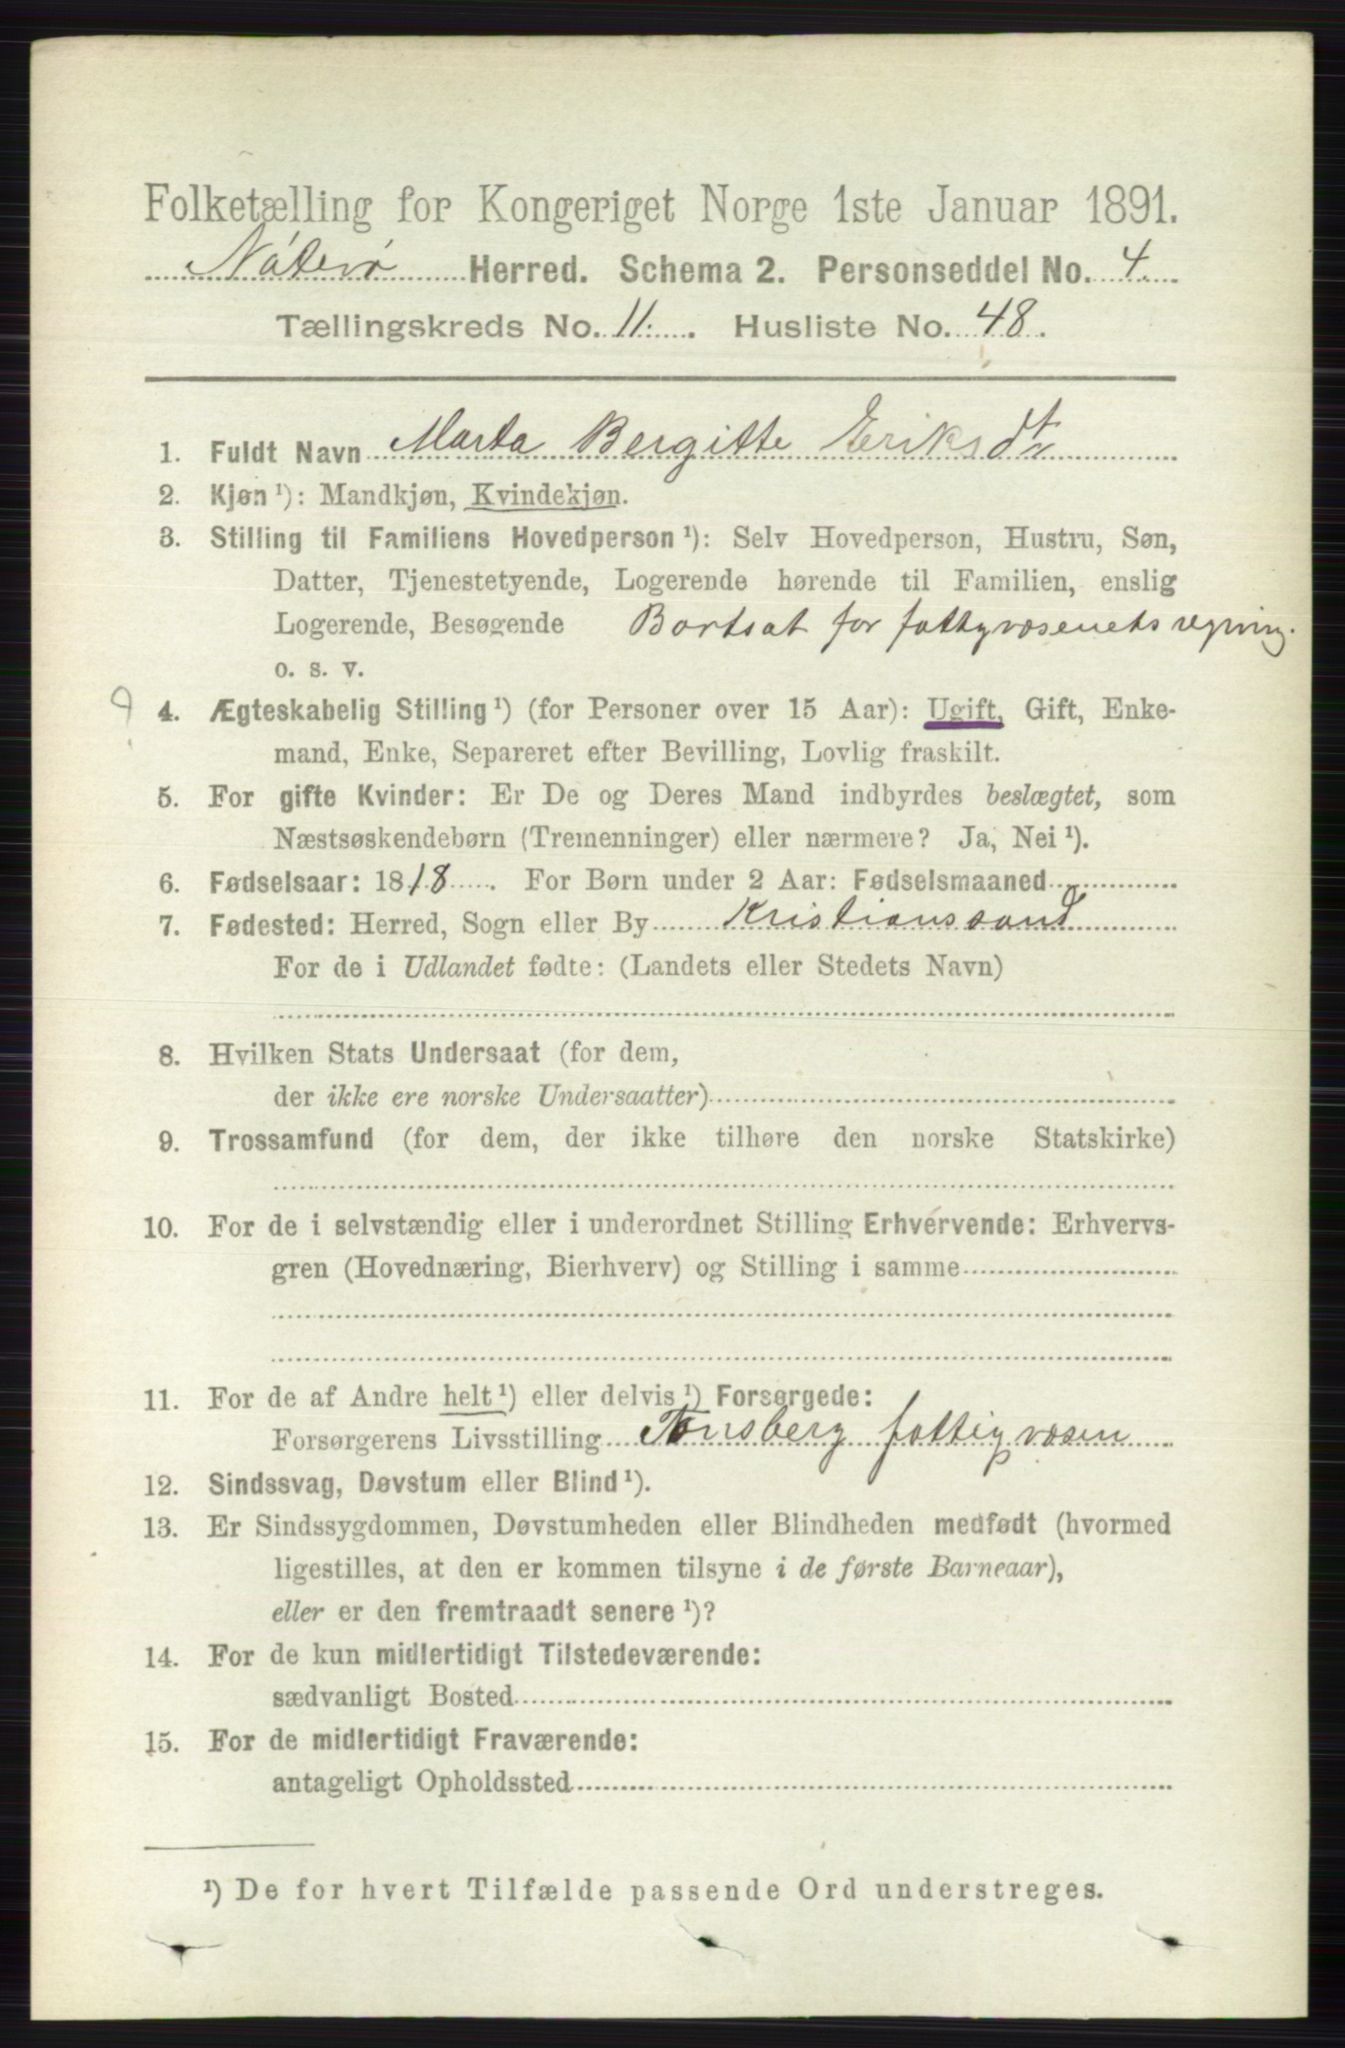 Folketælling for Kongeriget Norge 1ste Januar 1891.
Nøterø Herred. Schema 2. Personseddel No. 4.
Tællingskreds No. 11. Husliste No. 48.
1. Fuldt Navn Marta Bergitte Eriksdtr
2. Kjøn ¹): Mandkjøn, Kvindekjøn.
3. Stilling til Familiens Hovedperson ¹): Selv Hovedperson, Hustru, Søn,
Datter, Tjenestetyende, Logerende hørende til Familien, enslig
Logerende, Besøgende Bortsat for fattigvæsenets regning.
o. s. v.
4. Ægteskabelig Stilling ¹) (for Personer over 15 Aar): Ugift, Gift, Enke-
mand, Enke, Separeret efter Bevilling, Lovlig fraskilt.
5. For gifte Kvinder: Er De og Deres Mand indbyrdes beslægtet, som
Næstsøskendebørn (Tremenninger) eller nærmere? Ja, Nei ¹).
6. Fødselsaar: 1818. For Børn under 2 Aar: Fødselsmaaned
7. Fødested: Herred, Sogn eller By Kristianssand
For de i Udlandet fødte: (Landets eller Stedets Navn)
8. Hvilken Stats Undersaat (for dem,
der ikke ere norske Undersaatter)
9. Trossamfund (for dem, der ikke tilhøre den norske Statskirke)
10. For de i selvstændig eller i underordnet Stilling Erhvervende: Erhvervs-
gren (Hovednæring, Bierhverv) og Stilling i samme
11. For de af Andre helt ¹) eller delvis ¹) Forsørgede:
Forsørgerens Livsstilling Tønsberg fattigvæsen
12. Sindssvag, Døvstum eller Blind ¹).
13. Er Sindssygdommen, Døvstumheden eller Blindheden medfødt (hvormed
ligestilles, at den er kommen tilsyne i de første Barneaar),
eller er den fremtraadt senere ¹)?
14. For de kun midlertidigt Tilstedeværende:
sædvanligt Bosted
15. For de midlertidigt Fraværende:
antageligt Opholdssted
¹) De for hvert Tilfælde passende Ord understreges.